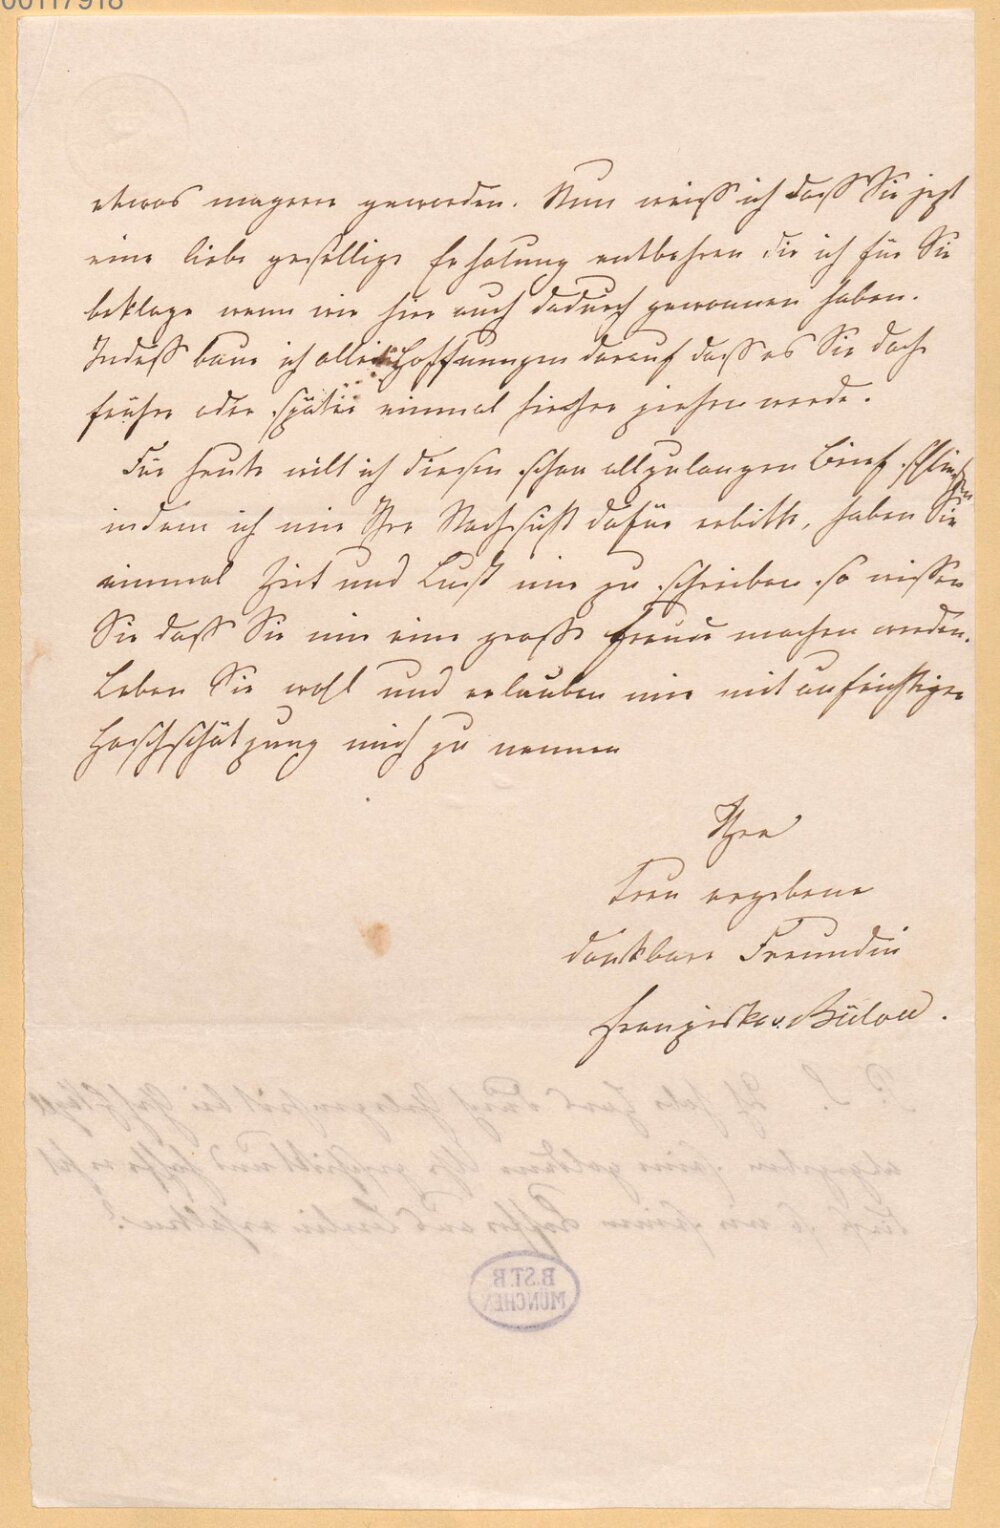 00117918
etwas magerer geworden. Nun weiss ich dass Sie jezt
eine liebe gesellige Erholung entbehren die ich für Sie
beklage wenn wir hier auch dadurch gewonnen haben.
Indess baue ich allerlei Hoffnungen darauf dass es Sie doch
früher oder später einmal hierher ziehen werde.
Für heute will ich diesen schon allzulangen Brief schliessen
indem ich mir Ihre Nachsicht dafür erbitte, haben Sie
einmal Zeit und Lust mir zu schreiben so wissen
Sie dass Sie mir eine grosse Freude machen werden.
Leben Sie wohl und erlauben mir mit aufrichtiger
Hochschätzung mich zu nennen
Ihre
treu ergebene
dankbare Freundin
Franziska v. Bülow.
P. S. Ich habe
B.ST.B
MÜNCHEN